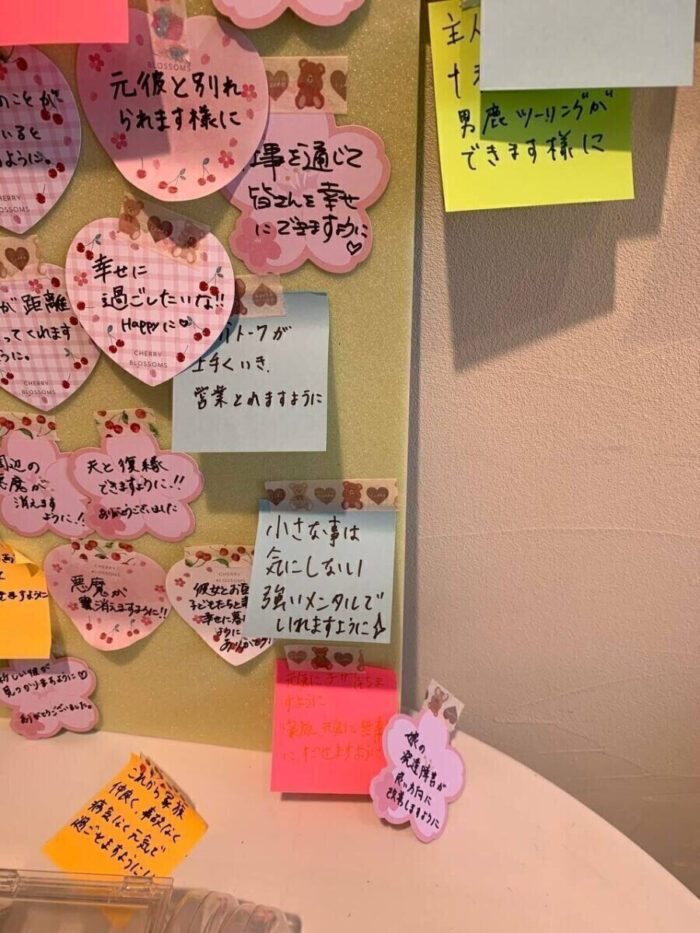 元彼と別れ
られます様に
CHERRY
BLOSSOMS
のことが
いると
ように。
CHERRY
BLOSSOMS
事を通じて
皆さんを幸せ
にできますように♡
主人
十
男鹿ツーリングが
できます様に
幸せに
過ごしたいな!!
Happyに♡
CHERRY
BLOSSOMS
が距離
ってくれます
うに。
CHERRY
BLOSSOMS
トークが
上手くいき、
営業とれますように
周辺の
悪魔が
消えます
ように!!
夫と復縁
できますように!!
ありがとうございました
小さな事は
気にしない
強いメンタルで
いれますように
CHERRY
BLOSSOMS
悪魔が
消えますように!!
彼女とお
子どもたちと
幸せに暮
ように
ありがとう!
せますように
新しい彼が
見つかりますように♡
ありがとうございました。
すように
家族
娘の
発達障害が
良い方向に
改善しますように
これから家族
仲良く、
病気なく元気で
過ごせますように!!